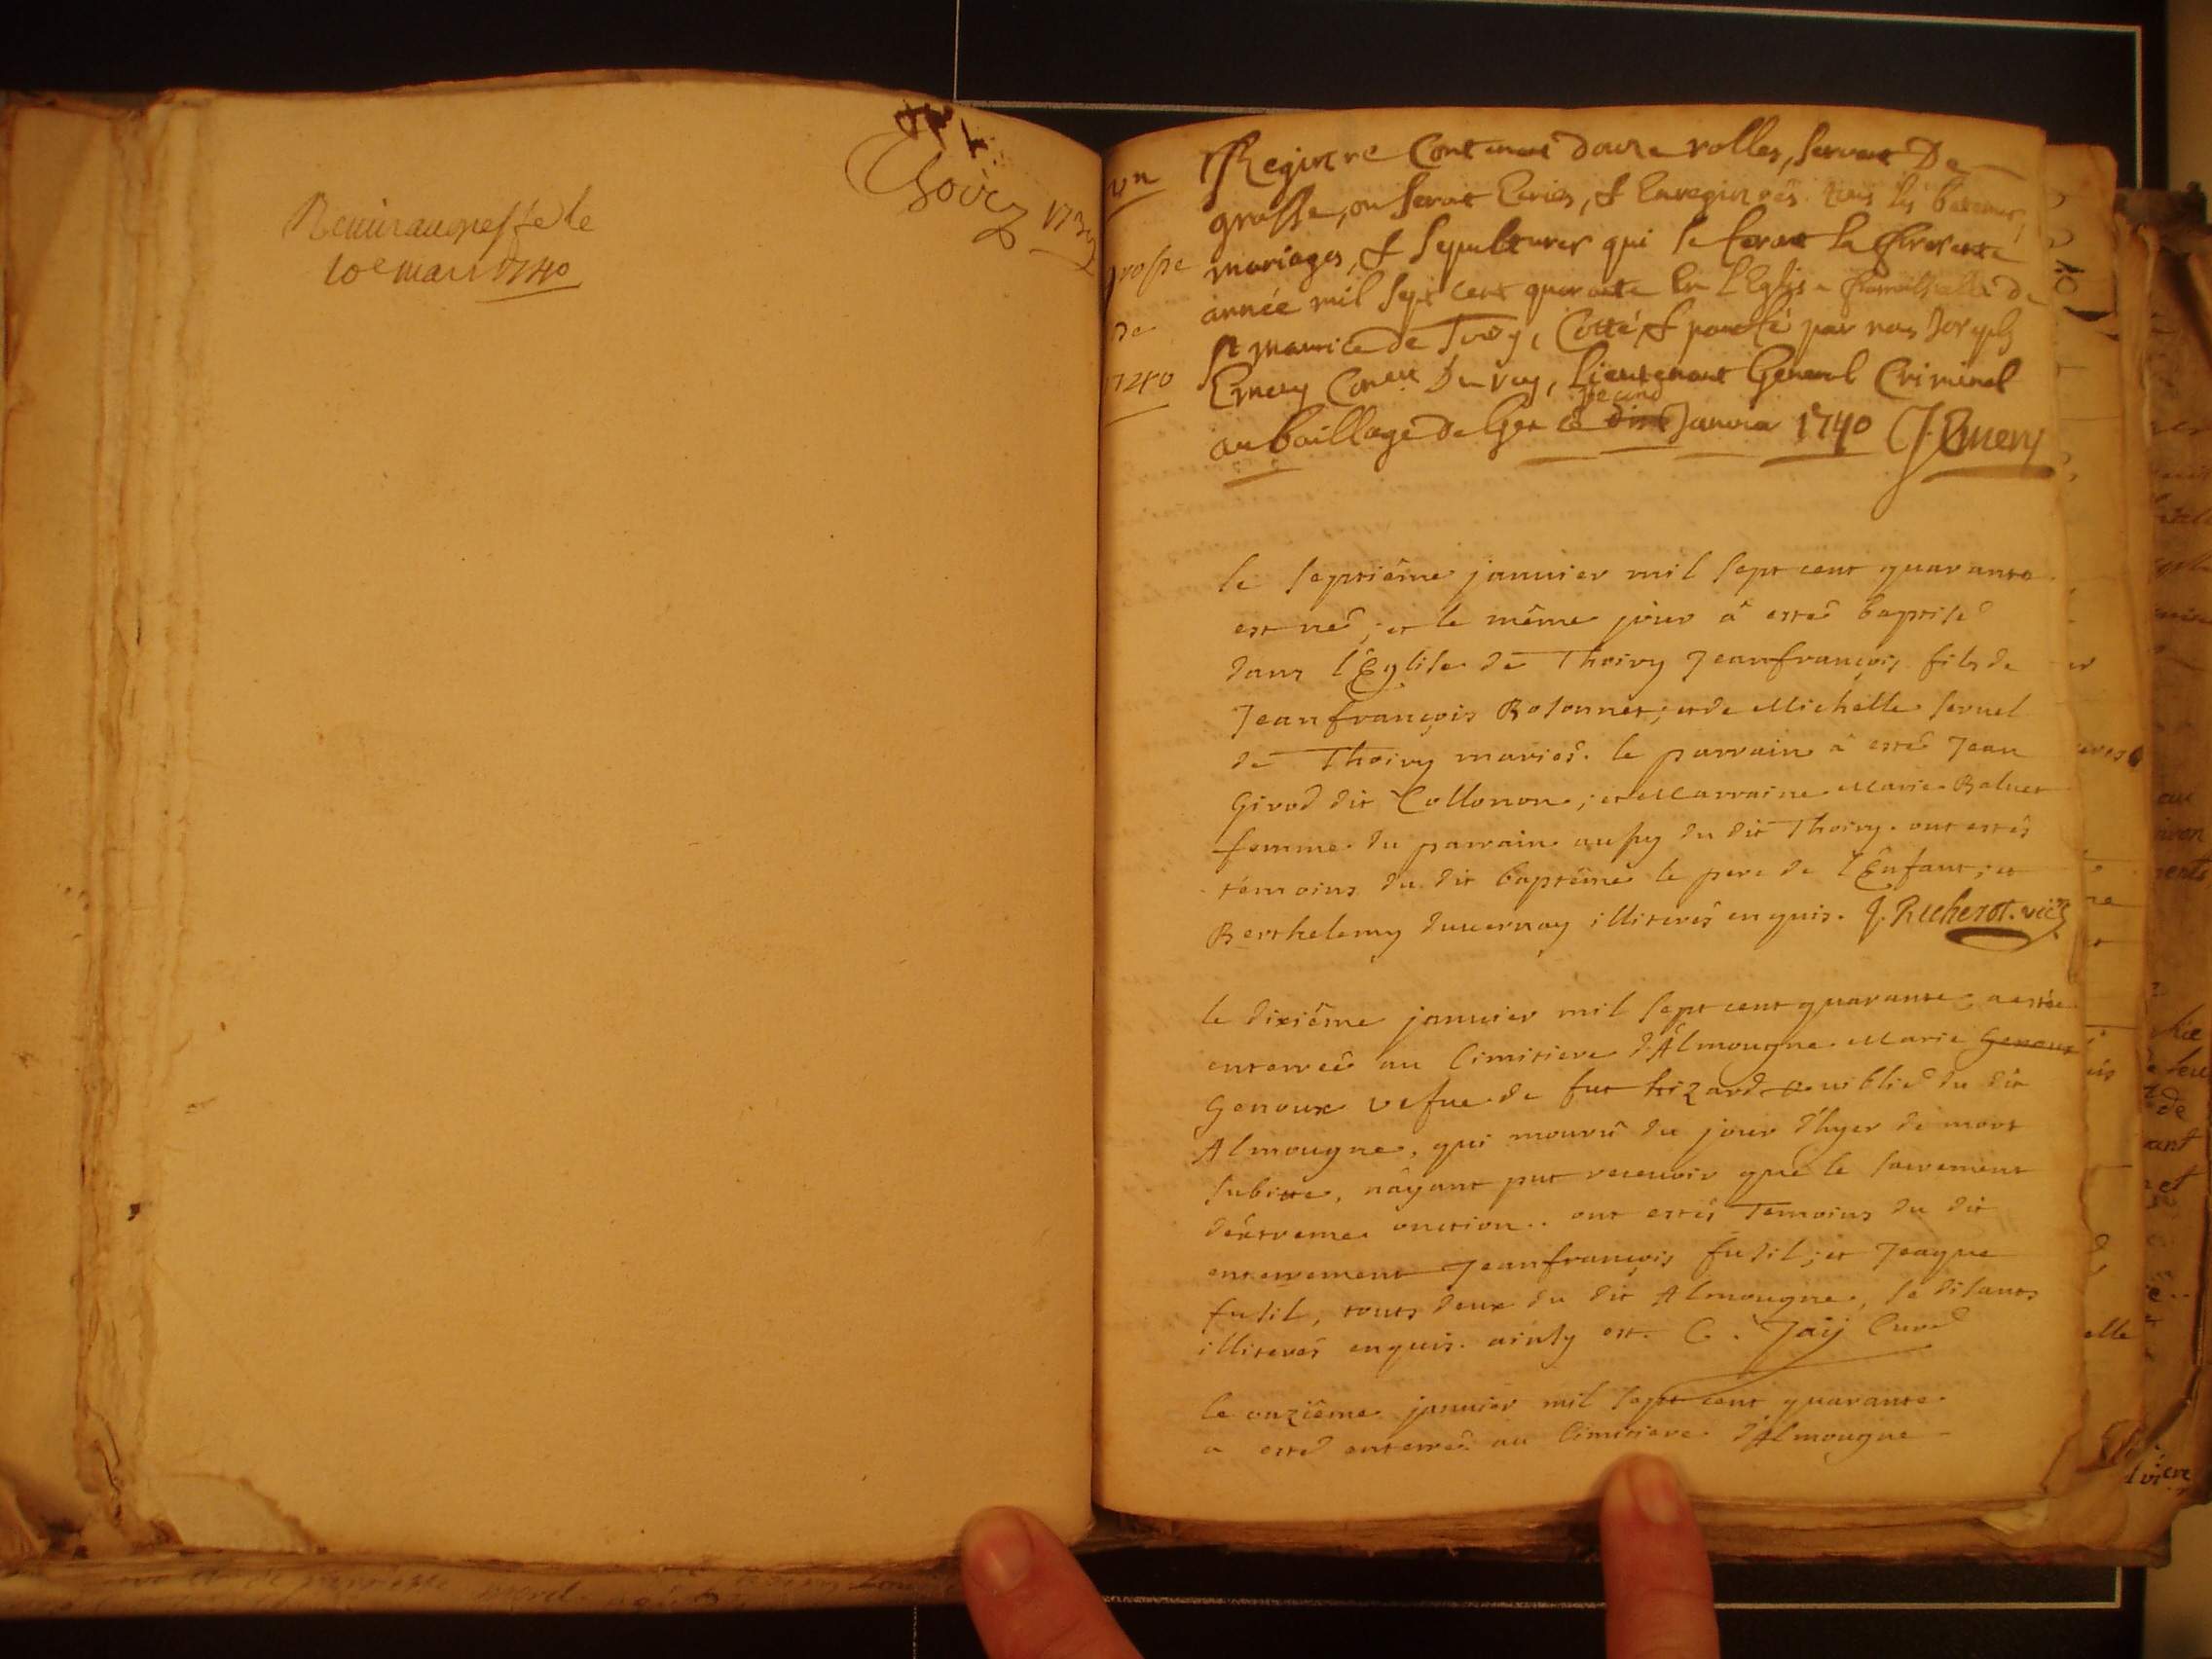 Remis au greffe le
10e mars 1740
Thoiry 1739
un
grosse
de
1740
Registre Contenant douze rolles, servant De
grosse, ou seront Ecrits, & Enregistrés tous les batemes,
mariages, & sepultures qui se feront la presente
année mil sept cent quarante En l'Eglise parroissialle de
St maurice de Toiry, Cotté & paraffé par nous Joseph
Emery Coner Du roy, Lieutenant General Criminel
second
au baillage de Gex ce Janvier 1740 J. Emery
le septiême januier mil sept cent quarante
est né, et le même jour â esté baptisé
dans l'Eglise de Thoiry Jeanfrançois fils de
Jeanfrançois Bosonnet; et de Michelle seruel
de Thoiry mariés. le parrain â esté Jean
Girod dit Collonon; et Marraine Marie Baluet
femme du parrain aussy du dit Thoiry. ont estés
témoins du dit baptême le pere de l'Enfant; et
Berthelemy duuernay illiterés enquis. J. Richerot. vicr
le dixiême januier mil sept cent quarante a estée
enterreê au Cimitiere d'Almougne Marie Genoux
Genoux vefue de fut du dit
Almougne, qui mourû du jour d'hyer de mort
subitte, n'âyant put receuoir que le sacrement
d'éxtreme onction.. ont estés Temoins du dit
enterrement Jeanfrançois fusil; et Jaque
fusil, touts deux du dit Almougne, se disants
illiterés enquis. ainsy est. C. Jaij Curé
le onziême januier mil sept cent quarante
a esté enterreê au Cimitiere d'Almougne